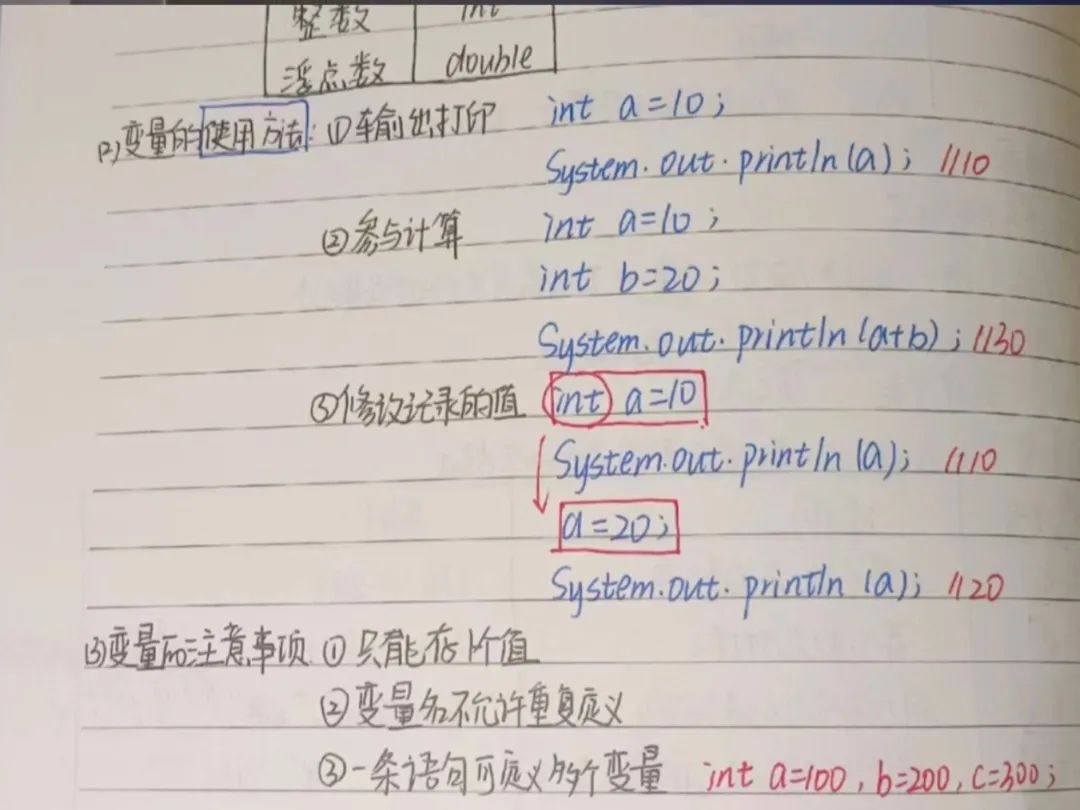 整数 int
浮点数 double
(2)变量的使用方法: ①输出打印 int a=10;
System.out.println(a); //10
②参与计算 int a=10;
int b=20;
System.out.println(a+b); //30
③修改记录的值 int a=10
System.out.println(a); //10
a=20;
System.out.println(a); //20
(3)变量的注意事项 ①只能存1个值
②变量名不允许重复定义
③一条语句可定义多个变量 int a=100, b=200, c=300;